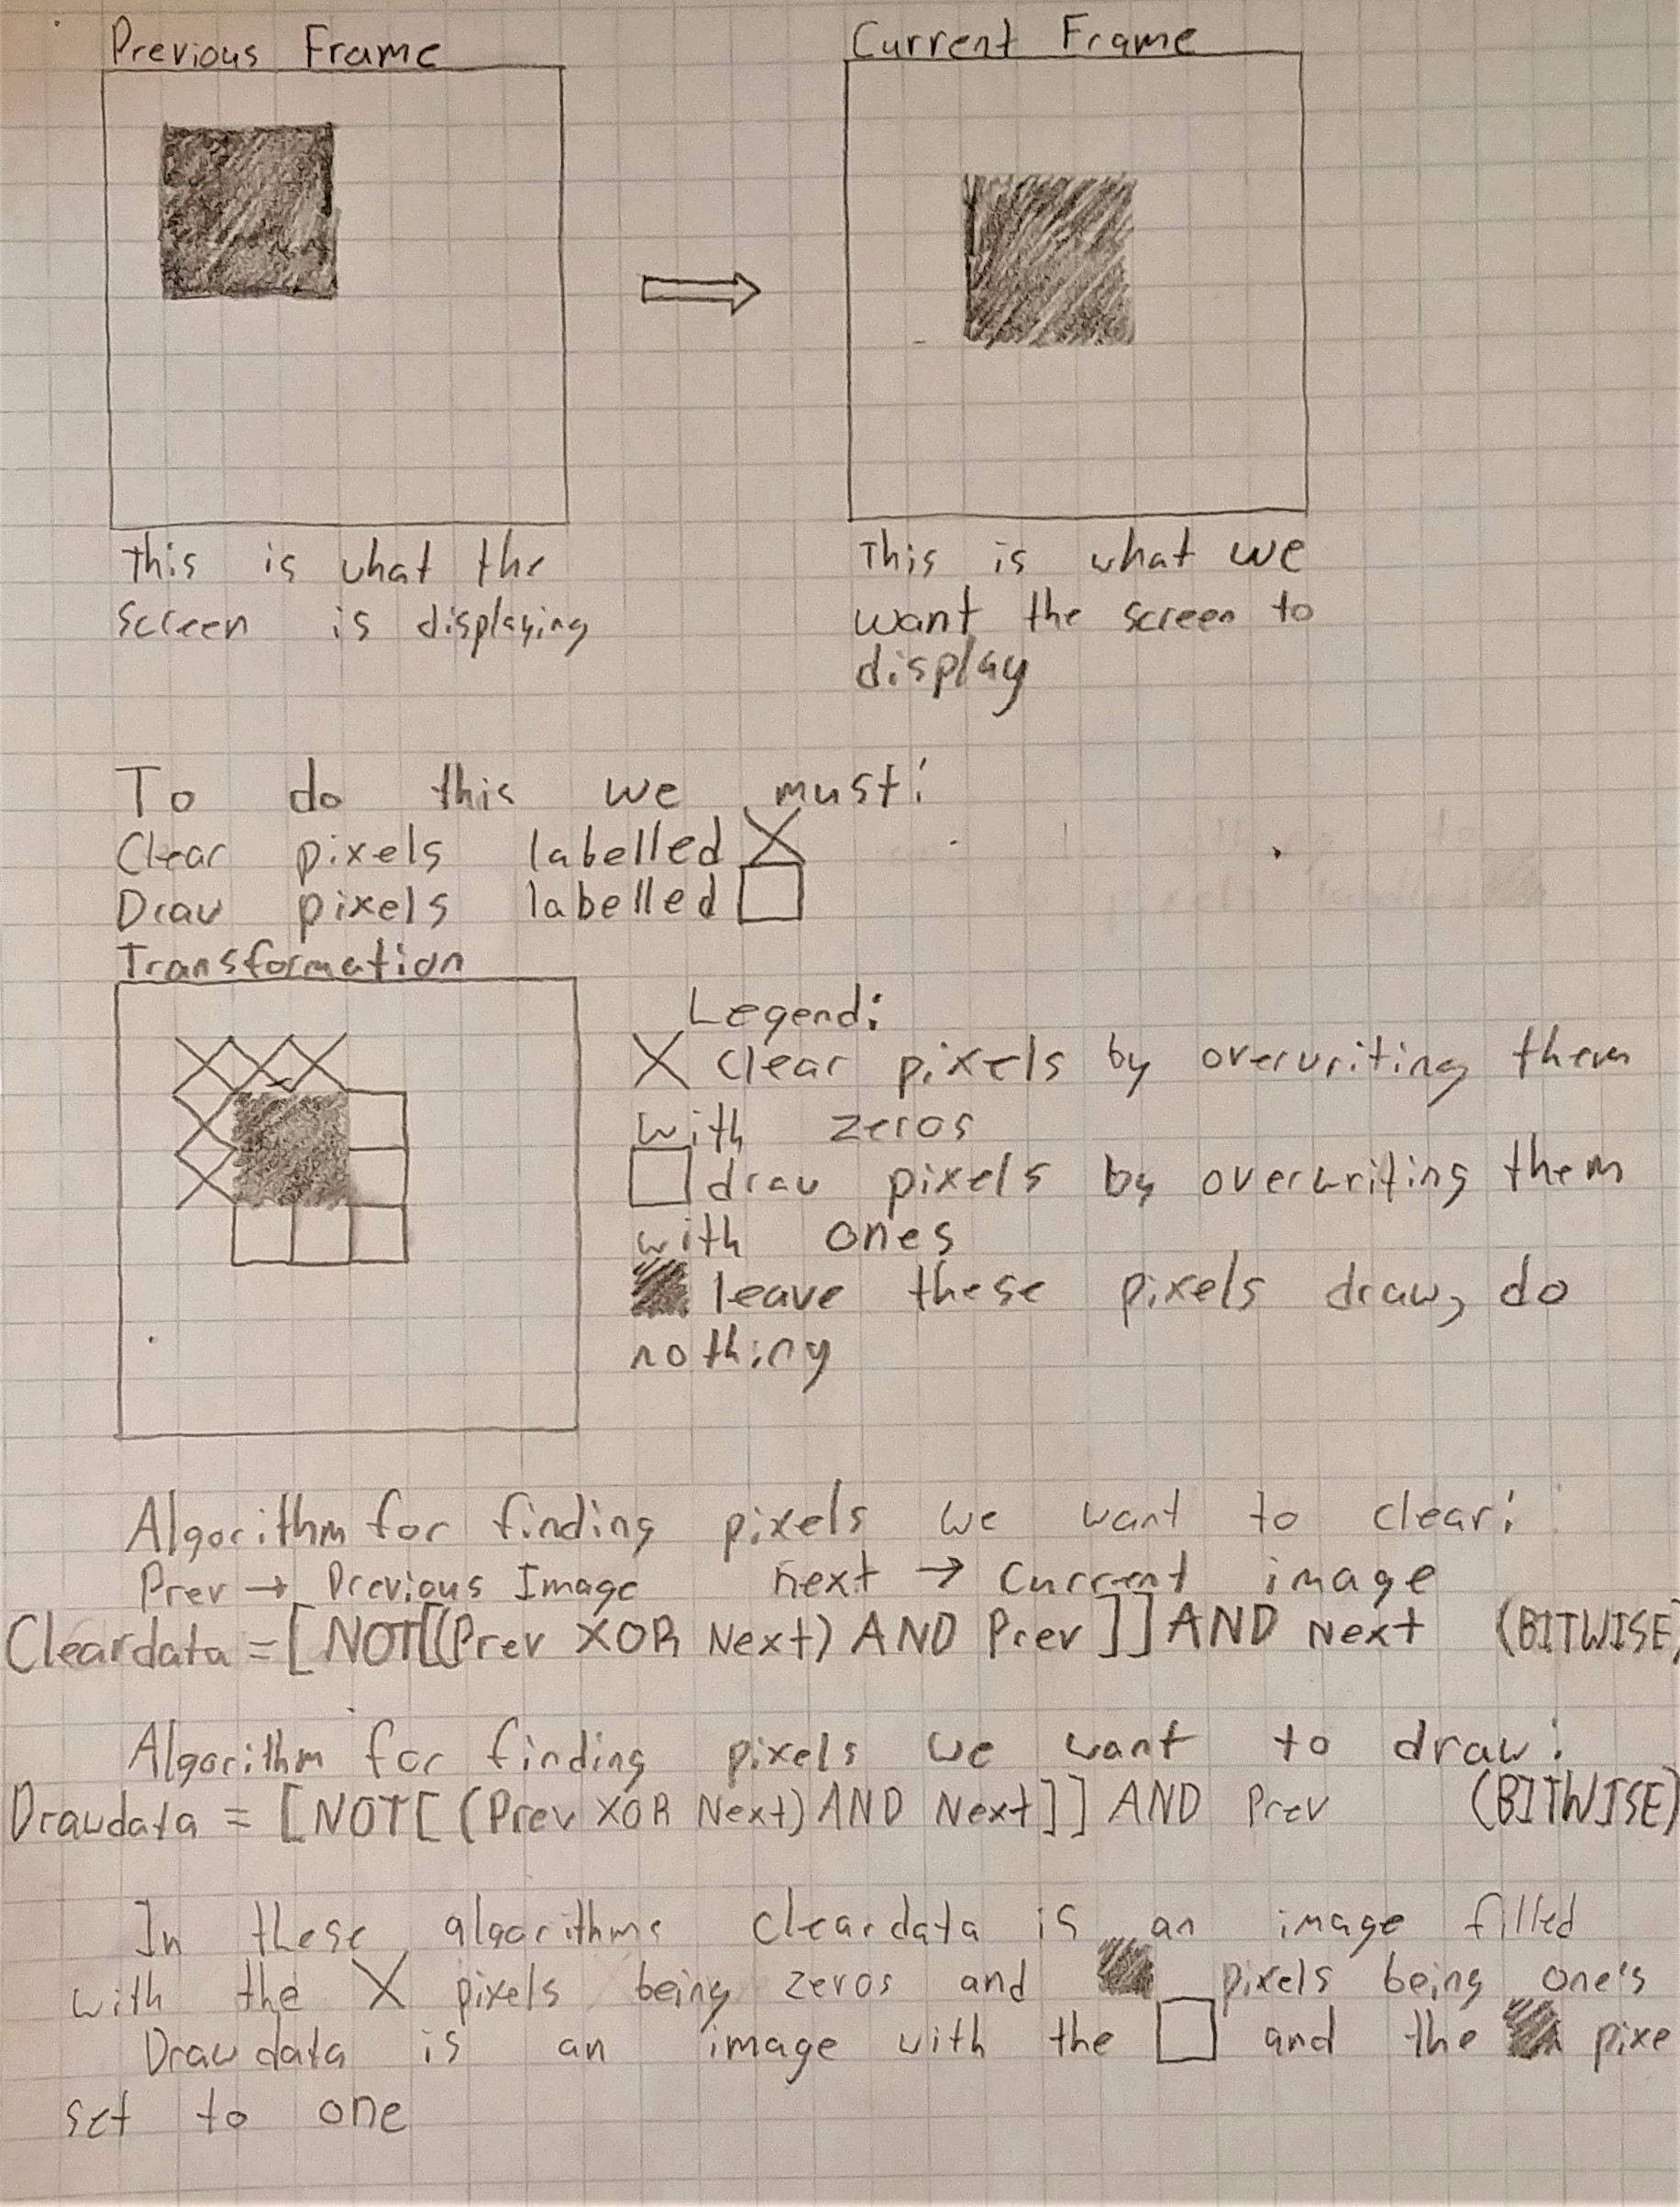 Previous Frame
Current Frame
This is what the
screen is displaying
This is what we
want the screen to
display
To do this we must:
Clear pixels labelled
Draw pixels labelled
Transformation
Legend:
X clear pixels by overwriting them
with zeros
draw pixels by overwriting them
with ones
leave these pixels draw, do
nothing
Algorithm for finding pixels we want to clear:
Prev → Previous Image next → current image
Cleardata = [NOT[(Prev XOR Next) AND Prev]] AND Next (BITWISE)
Algorithm for finding pixels we want to draw:
Drawdata = [NOT[(Prev XOR Next) AND Next]] AND Prev (BITWISE)
In these algorithms cleardata is an image filled
with the X pixels being zeros and pixels being one's
Drawdata is an image with the and the pixe
set to one